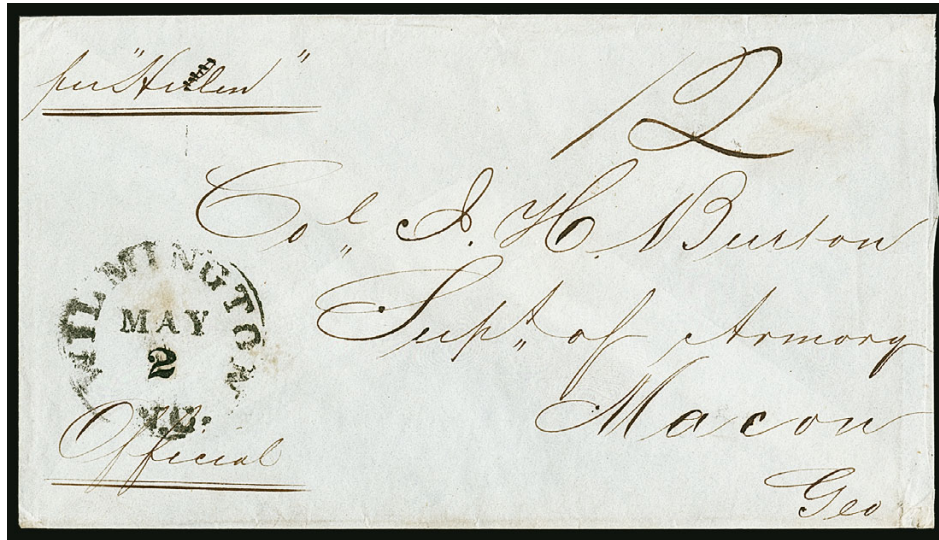 per "Helen"
12
Col„ J. H. Burton
Supt„ of Armory
Macon
Geo
WILMINGTON
MAY
2
N.C.
Official